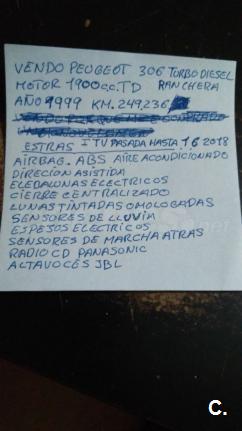 VENDO PEUGEOT 306 TURBO DIESEL
MOTOR 1900 c.c. TD RANCHERA
AÑO 1999 KM. 249,236
VENDO PORQUE ME HE COMPRADO
ESTRAS ITV PASADA HASTA 16 2018
AIRBAG. ABS AIRE ACONDICIONADO
DIRECION ASISTIDA
ELEBALUNAS ELECTRICOS
CIERRE CENTRALIZADO
LUNAS TINTADAS OMOLOGADAS
SENSORES DE LLUVIA
ESPEJOS ELECTRICOS
SENSORES DE MARCHA ATRAS
RADIO CD PANASONIC
ALTAVOCES JBL
C.